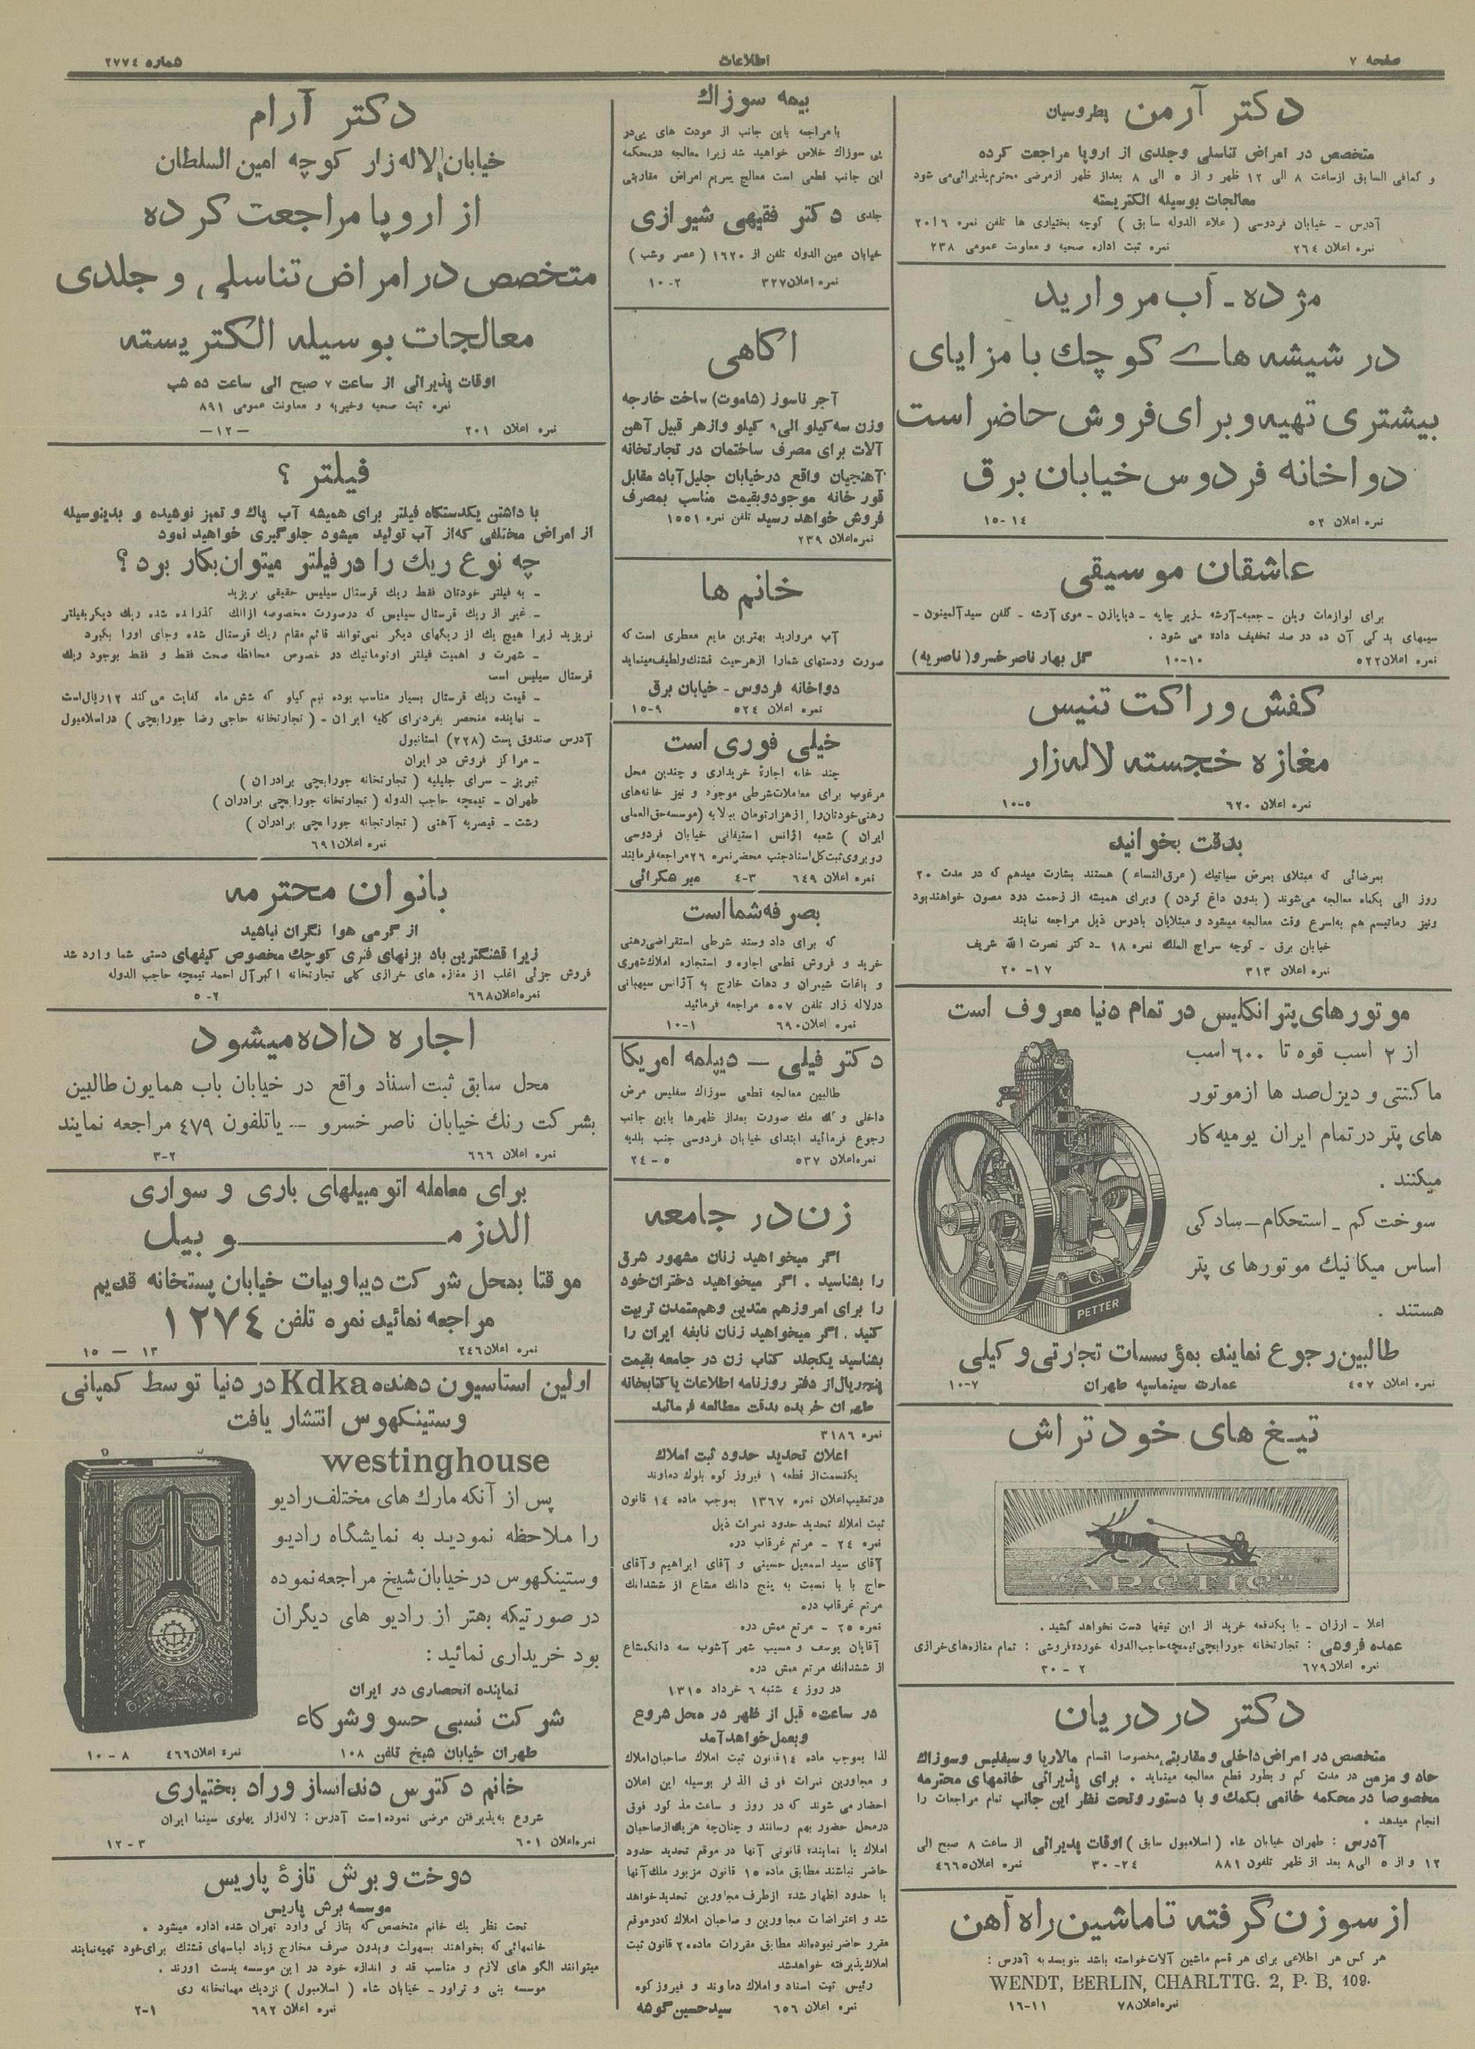 صفحه ۷
اطلاعات
شماره ۲۷۷٤
دکتر آرمن پطروسیان
متخصص در امراض تناسلی وجلدی از اروپا مراجعت کرده
و کمافی السابق ازساعت ۸ الی ۱۲ ظهر و از ۵ الی ۸ بعداز ظهر ازمرضی محترم‌پذیرائی‌می شود
معالجات بوسیله الکتریسته
آدرس - خیابان فردوسی ( علاء الدوله سابق ) کوچه بختیاری ها تلفن نمره ۲۰۱٦
نمره اعلان ۲٦٤ نمره ثبت اداره صحیه و معاونت عمومی ۲۳۸
مژده - آب مروارید
در شیشه های کوچك با مزایای
بیشتری تهیه و برای فروش حاضر است
دواخانه فردوس خیابان برق
نمره اعلان ۵۲ ۱٤-۱۵
عاشقان موسیقی
برای لوازمات ویلن - جعبه-آرشه -زیر چانه - دیاپازن - موی آرشه - کلفن سیدآلمینون -
سیمهای یدکی آن ده در صد تخفیف داده می شود .
نمره اعلان۵۲۲ ۱۰-۱۰ گل بهار ناصرخسرو( ناصریه)
کفش و راکت تنیس
مغازه خجسته لاله‌زار
نمره اعلان ٦۲۰ ۵-۱۰
بدقت بخوانید
بمرضائی که مبتلای بمرض سیاتیك ( عرق‌النساء ) هستند بشارت میدهم که در مدت ۲۰
روز الی یکماه معالجه می‌شوند ( بدون داغ کردن ) وبرای همیشه از زحمت درد مصون خواهندبود
ونیز رماتیسم هم به‌اسرع وقت معالجه میشود و مبتلایان بادرس ذیل مراجعه نمایند
خیابان برق - کوچه سراج الملك نمره ۱۸ -دکتر نصرت الله شریف
نمره اعلان ۳۱۳ ۱۷- ۲۰
موتورهای پتر انگلیس در تمام دنیا معروف است
از ۲ اسب قوه تا ٦۰۰ اسب
ماکنتی و دیزل صد ها ازموتور
های پتر درتمام ایران یومیه کار
میکنند .
سوخت کم - استحکام - سادگی
اساس میکانیك موتورهای پتر
هستند .
PETTER
طالبین رجوع نمایند بمؤسسات تجارتی وکیلی
نمره اعلان ٤۵۷ عمارت سینماسپه طهران ۷-۱۰
تیغ های خود تراش
"ARCTIC"
اعلا - ارزان - با یکدفعه خرید از این تیغها دست نخواهد کشید.
عمده فروشی : تجارتخانه جورابچی‌تیمچه‌حاجب‌الدوله خورده‌فروشی : تمام مغازه‌های‌خرازی
نمره اعلان٦۷۹ ۲ - ۳۰
دکتر در دریان
متخصص در امراض داخلی و مقاربتی مخصوصا اقسام مالاریا و سیفلیس وسوزاك
حاد و مزمن در مدت کم و بطور قطع معالجه مینماید . برای پذیرائی خانمهای محترمه
مخصوصا در محکمه خانمی بکمك و با دستور وتحت نظر این جانب تمام مراجعات را
انجام میدهد .
آدرس : طهران خیابان شاه ( اسلامبول سابق ) اوقات پذیرائی از ساعت ۸ صبح الی
۱۲ و از ۵ الی۸ بعد از ظهر تلفون ۸۸۱ ۲٤- ۳۰ نمره اعلان٤٦٦۵
از سوزن گرفته تا ماشین راه آهن
هر کس هر اطلاعی برای هر قسم ماشین آلات‌خواسته باشد بنویسد به آدرس :
WENDT, BERLIN, CHARLTTG. 2, P. B, 109.
نمره اعلان۷۸ ۱۱-۱٦
بیمه سوزاك
بامراجعه باین جانب از عودت های پی‌در
پی سوزاك خلاص خواهید شد زیرا معالجه درمحکمه
این جانب قطعی است معالج سریع امراض مقاربتی
جلدی دکتر فقیهی شیرازی
خیابان عین الدوله تلفن از ۱٦۲۰ ( عصر وشب )
نمره اعلان۳۲۷ ۲-۱۰
آگاهی
آجر ناسوز (شاموت) ساخت خارجه
وزن سه کیلو الی۹ کیلو وازهر قبیل آهن
آلات برای مصرف ساختمان در تجارتخانه
آهنچیان واقع درخیابان جلیل‌آباد مقابل
قورخانه موجودوبقیمت مناسب بمصرف
فروش خواهد رسید تلفن نمره ۱۵۵۱
نمره‌اعلان ۲۳۹
خانم ها
آب مروارید بهترین مایع معطری است که
صورت ودستهای شمارا ازهرحیث قشنك‌ولطیف‌مینماید
دواخانه فردوس - خیابان برق
نمره اعلان ۵۲٤ ۹-۱۵
خیلی فوری است
چند خانه اجاره خریداری و چندین محل
مرغوب برای معاملات‌شرطی موجود و نیز خانه‌های
رهنی‌خودتان‌را ازهزارتومان ببالا به (موسسه‌حق‌العملی
ایران ) شعبه آژانس استیفانی خیابان فردوسی
روبروی‌ثبت‌کل‌اسنادجنب محضرنمره ۲٦مراجعه‌فرمایند
نمره اعلان ٦٤۹ ۳-٤
بصرفه شما است
که برای داد وستد شرطی استقراضی‌رهنی
خرید و فروش قطعی اجاره و استجاره املاك‌شهری
و باغات شمیران و دهات خارج به آژانس سیهبانی
درلاله زار تلفن ۵۰۷ مراجعه فرمائید
نمره اعلان٦۹۰ ۱-۱۰
دکتر فیلی — دیپلمه امریکا
طالبین معالجه قطعی سوزاك سفلیس مرض
داخلی و کك مك صورت بعداز ظهرها باین جانب
رجوع فرمائید ابتدای خیابان فردوسی جنب بلدیه
نمره‌اعلان ۵۳۷ ۵-۲٤
زن در جامعه
اگر میخواهید زنان مشهور شرق
را بشناسید . اگر میخواهید دختران‌خود
را برای امروزهم متدین وهم‌متمدن تربیت
کنید . اگر میخواهید زنان نابغه ایران را
بشناسید یکجلد کتاب زن در جامعه بقیمت
پنج‌ریال‌از دفتر روزنامه اطلاعات یاکتابخانه
طهران خریده بدقت مطالعه فرمائید
نمره ۳۱۸٦
اعلان تحدید حدود ثبت املاك
یکقسمت‌از قطعه ۱ فیروز کوه بلوك دماوند
درتعقیب‌اعلان نمره ۱۳٦۷ بموجب ماده ۱٤ قانون
ثبت املاك تحدید حدود نمرات ذیل
نمره ۲٤ - مرتع غرقاب دره
آقای سید اسمعیل حسینی و آقای ابراهیم وآقای
حاج بابا نسبت به پنج دانك مشاع از ششدانك
مرتع غرقاب دره
نمره ۲۵ - مرتع میش دره
آقایان یوسف و مسیب شهر آشوب سه دانك‌مشاع
از ششدانك مرتع میش دره
در روز ٤ شنبه ٦ خرداد ۱۳۱۵
در ساعت۵ قبل از ظهر در محل شروع
وبعمل خواهدآمد
لذا بموجب ماده ۱٤قانون ثبت املاك صاحبان‌املاك
و مجاورین نمرات فوق الذکر بوسیله این اعلان
احضار می شوند که در روز و ساعت مذکور فوق
درمحل حضور بهم رسانند و چنانچه هریك‌ازصاحبان
املاك یا نماینده قانونی آنها در موقع تحدید حدود
حاضر نباشند مطابق ماده ۱۵ قانون مزبور ملك‌آنها
با حدود اظهار شده ازطرف مجاورین تحدیدخواهد
شد و اعتراضات مجاورین و صاحبان املاك که‌درموقع
مقرر حاضر نبوده‌اند مطابق مقررات ماده۲۰ قانون ثبت
املاك‌پذیرفته خواهدشد
رئیس ثبت اسناد و املاك دماوند و فیروزکوه
نمره اعلان ٦۵٦ سیدحسین‌گوشه
دکتر آرام
خیابان لاله‌زار کوچه امین السلطان
از اروپا مراجعت کرده
متخصص در امراض تناسلی و جلدی
معالجات بوسیله الکتریسته
اوقات پذیرائی از ساعت ۷ صبح الی ساعت ده شب
نمره ثبت صحیه وخیریه و معاونت عمومی ۸۹۱
نمره اعلان ۲۰۱ —۱۲—
فیلتر ؟
با داشتن یکدستگاه فیلتر برای همیشه آب پاك و تمیز نوشیده و بدینوسیله
از امراض مختلفی که‌از آب تولید میشود جلوگیری خواهید نمود
چه نوع ریك را در فیلتر میتوان بکار برد ؟
- به فیلتر خودتان فقط ریك قرستال سیلیس حقیقی بریزید
- غیر از ریك قرستال سیلیس که درصورت مخصوصه ازالك گذرانده شده ریك دیگربفیلتر
نریزید زیرا هیچ یك از ریگهای دیگر نمی‌تواند قائم مقام ریك قرستال شده وجای اورا بگیرد
- شهرت و اهمیت فیلتر اوتوماتیك در خصوص محافظه صحت فقط و فقط بوجود ریك
قرستال سیلیس است
- قیمت ریك قرستال بسیار مناسب بوده نیم کیلو که شش ماه کفایت می کند ۱۲ریال‌است
- نماینده منحصر بفردبرای کلیه ایران - ( تجارتخانه حاجی رضا جورابچی ) دراسلامبول
آدرس صندوق پست (۲۲۸) استانبول
- مراکز فروش در ایران
تبریز - سرای جلیلیه ( تجارتخانه جورابچی برادران )
طهران - تیمچه حاجب الدوله ( تجارتخانه جورابچی برادران )
رشت - قیصریه آهنی ( تجارتخانه جورابچی برادران )
نمره اعلان٦۹۱
بانوان محترمه
از گرمی هوا نگران نباشید
زیرا قشنگترین باد بزنهای فنری کوچك مخصوص کیفهای دستی شما وارد شد
فروش جزئی اغلب از مغازه های خرازی کلی تجارتخانه اکبرآل احمد تیمچه حاجب الدوله
نمره‌اعلان٦٦۸ ۲- ۵
اجاره داده میشود
محل سابق ثبت اسناد واقع در خیابان باب همایون طالبین
بشرکت رنك خیابان ناصر خسرو — یاتلفون ٤۷۹ مراجعه نمایند
نمره اعلان ٦٦٦ ۲-۳
برای معامله اتومبیلهای باری و سواری
الدزموبیل
موقتا بمحل شرکت دیباوبیات خیابان پستخانه قدیم
مراجعه نمائید نمره تلفن ۱۲۷٤
نمره اعلان۲٤٦ ۱۳ — ۱۵
اولین استاسیون دهنده Kdka در دنیا توسط کمپانی
وستینکهوس انتشار یافت
westinghouse
پس از آنکه مارك های مختلف‌رادیو
را ملاحظه نمودید به نمایشگاه رادیو
وستینکهوس درخیابان شیخ مراجعه نموده
در صورتیکه بهتر از رادیو های دیگران
بود خریداری نمائید :
نماینده انحصاری در ایران
شرکت نسبی حسو و شرکاء
طهران خیابان شیخ تلفن ۱۰۸
نمره اعلان٤٦٦ ۸ - ۱۰
خانم دکترس دندانساز وراد بختیاری
شروع به‌پذیرفتن مرضی نموده‌است آدرس : لاله‌زار پهلوی سینما ایران
نمره‌اعلان ٦۰۱ ۳-۱۲
دوخت و برش تازهٔ پاریس
موسسه برش پاریس
تحت نظر یك خانم متخصص که بتازگی وارد تهران شده اداره میشود .
خانمهائی که بخواهند بسهولت وبدون صرف مخارج زیاد لباسهای قشنك برای‌خود تهیه‌نمایند
میتوانند الگو های لازم و مناسب قد و اندازه خود در این موسسه بدست آورند .
موسسه بنی و تراور - خیابان شاه ( اسلامبول ) نزدیك مهمانخانه ری
نمره اعلان ٦۹۲ ۱-۲